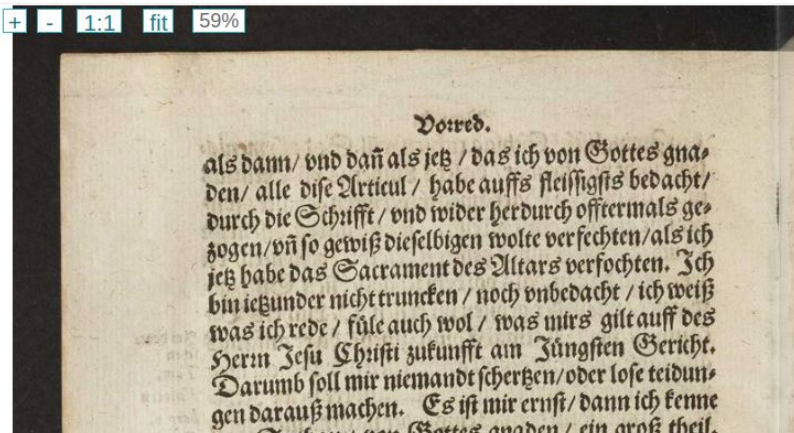 + - 1:1 fit 59%
Vorred.
als dann / vnd dañ als jetz / das ich von Gottes gna⸗
den / alle dise Articul / habe auffs fleissigsts bedacht /
durch die Schrifft / vnd wider herdurch offtermals ge⸗
zogen / vñ so gewiß dieselbigen wolte verfechten / als ich
jetz habe das Sacrament des Altars verfochten. Ich
bin ietzunder nicht truncken / noch vnbedacht / ich weiß
was ich rede / füle auch wol / was mirs gilt auff des
Herrn Jesu Christi zukunfft am Jüngsten Gericht.
Darumb soll mir niemandt schertzen / oder lose teidun⸗
gen darauß machen. Es ist mir ernst / dann ich kenne
von Gottes gnaden / ein groß theil.